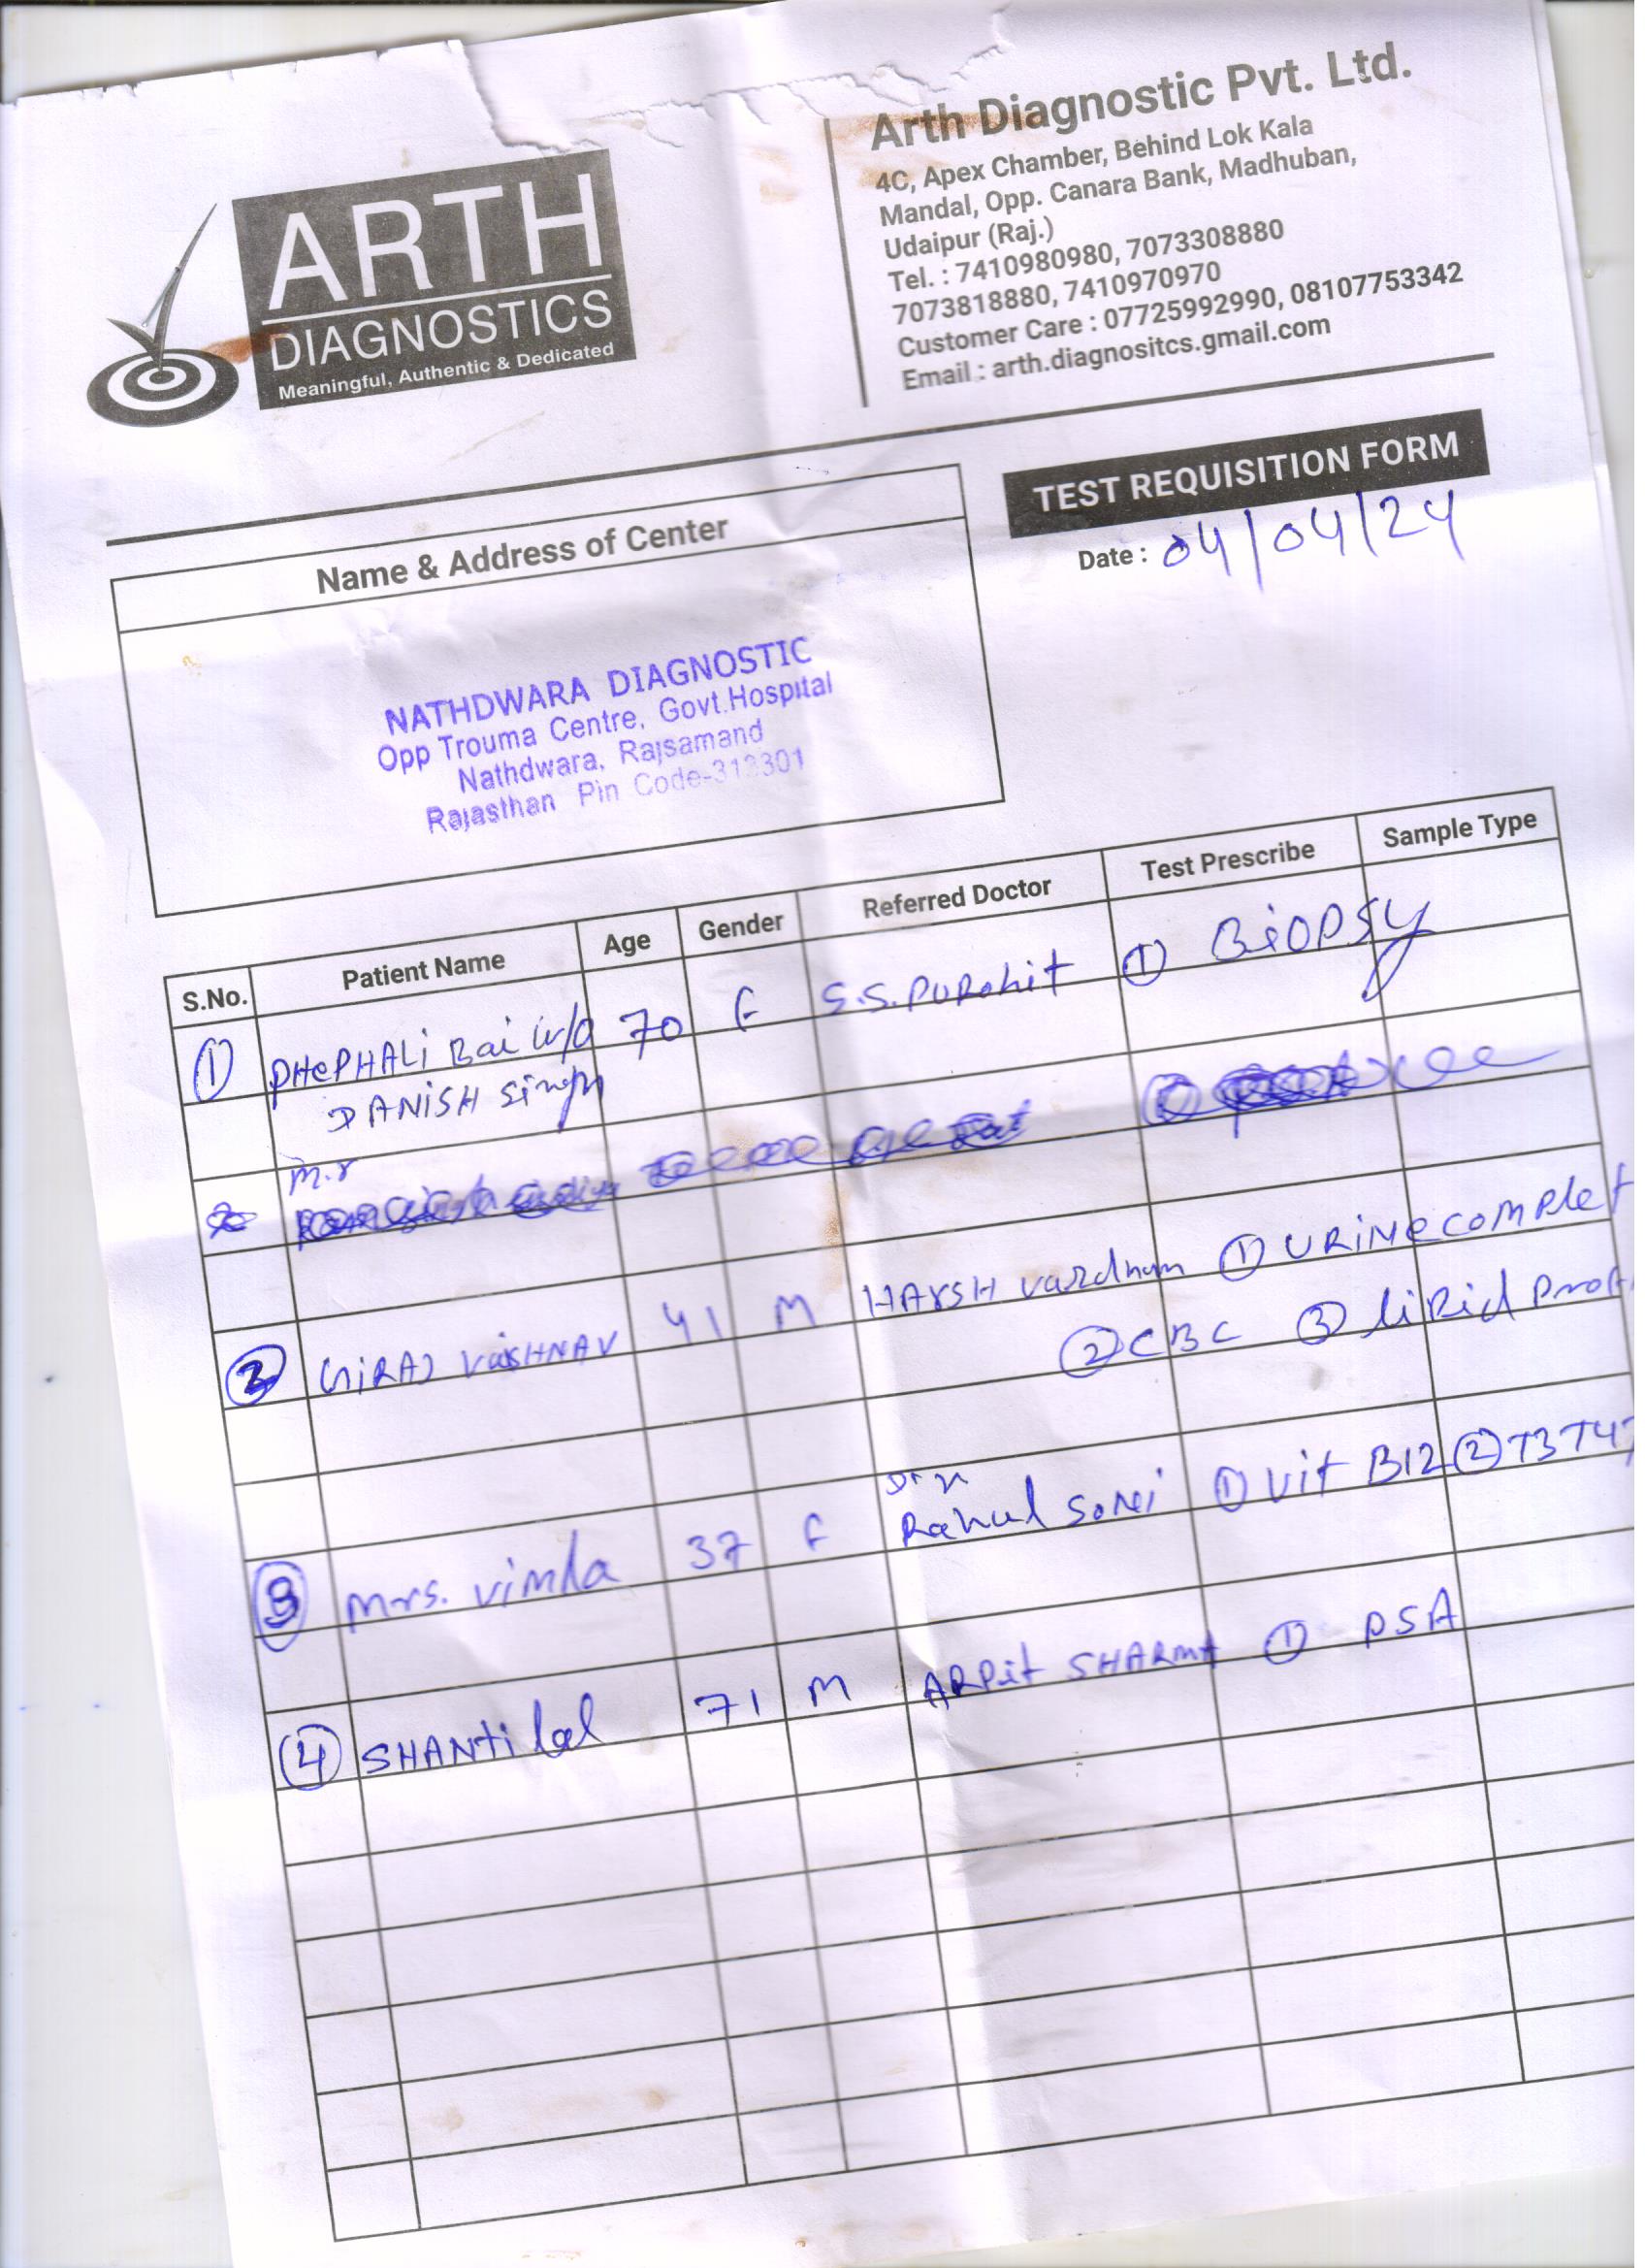 ARTH
DIAGNOSTICS
Meaningful, Authentic & Dedicated
Arth Diagnostic Pvt. Ltd.
4C, Apex Chamber, Behind Lok Kala
Mandal, Opp. Canara Bank, Madhuban,
Udaipur (Raj.)
Tel. : 7410980980, 7073308880
7073818880, 7410970970
Customer Care : 07725992990, 08107753342
Email : arth.diagnositcs.gmail.com
TEST REQUISITION FORM
Date : 04/04/24
Name & Address of Center
NATHDWARA DIAGNOSTIC
Opp Trouma Centre, Govt.Hospital
Nathdwara, Rajsamand
Rajasthan Pin Code-313301
S.No. Patient Name Age Gender Referred Doctor Test Prescribe Sample Type
① PHePHALi Bai w/o 70 F S.S. PURohit ① BiOPSy
DANiSH Singh
m.r
② GiRAJ VaiSHNAV 41 M HArSH vardhan ① URiNe COMPlet
② CBC ③ liPid Prof
③ Mrs. vimla 37 F Rahul SoNi ① Vit B12 ② T3 T4
④ SHANti lal 71 M ARPit SHARMA ① PSA